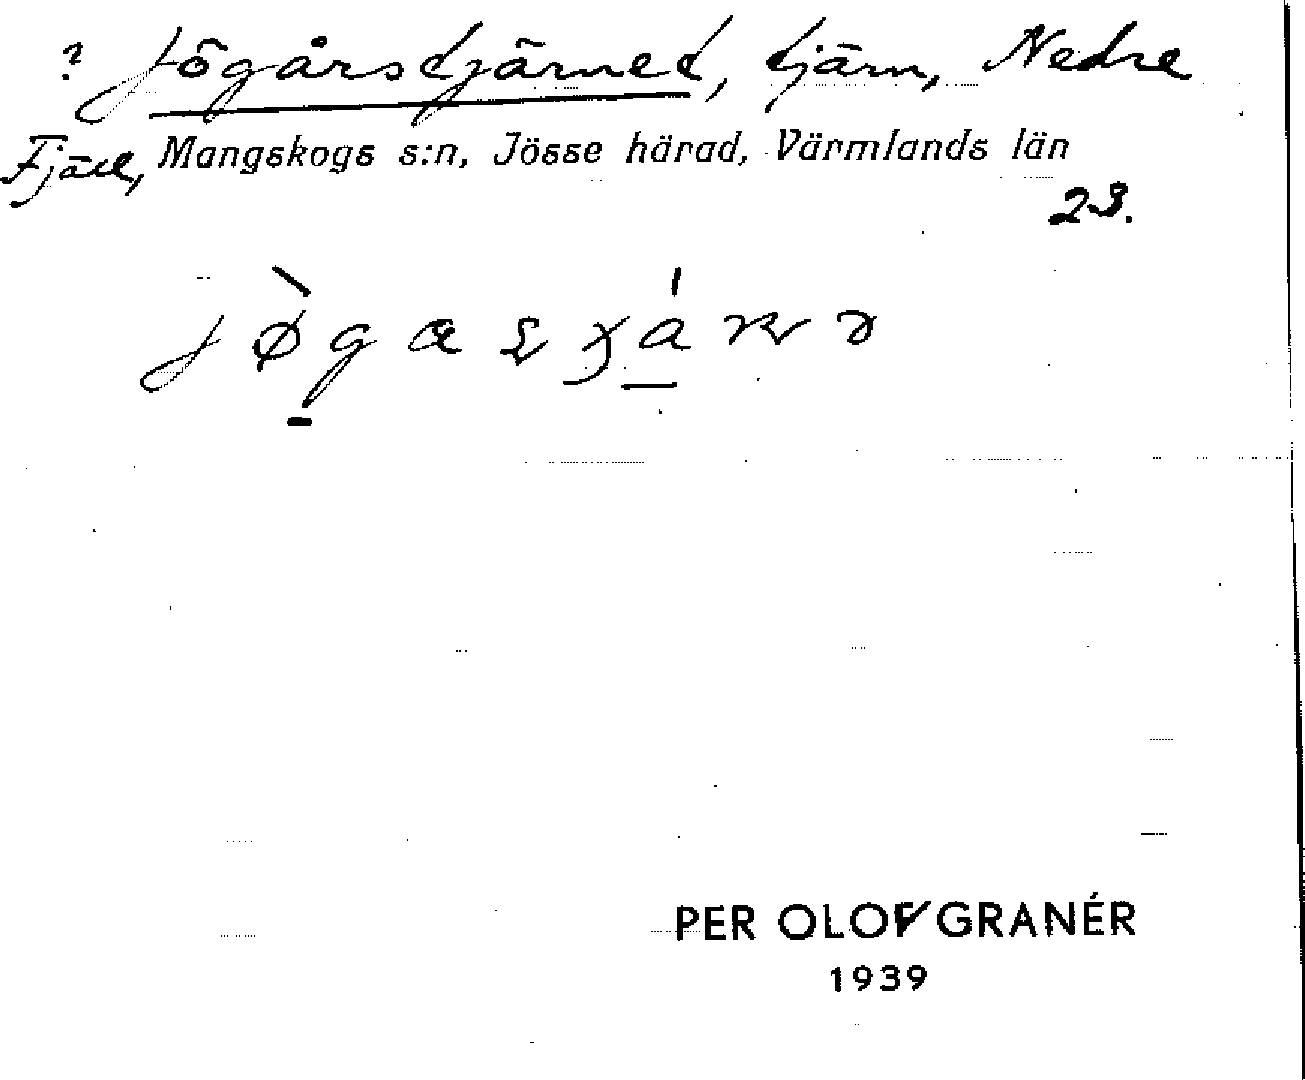 ? Jögårstjärnet, tjärn, Nedre
Fjäll, Mangskogs s:n, Jösse härad, Värmlands län
23.
PER OLOF GRANÉR
1939